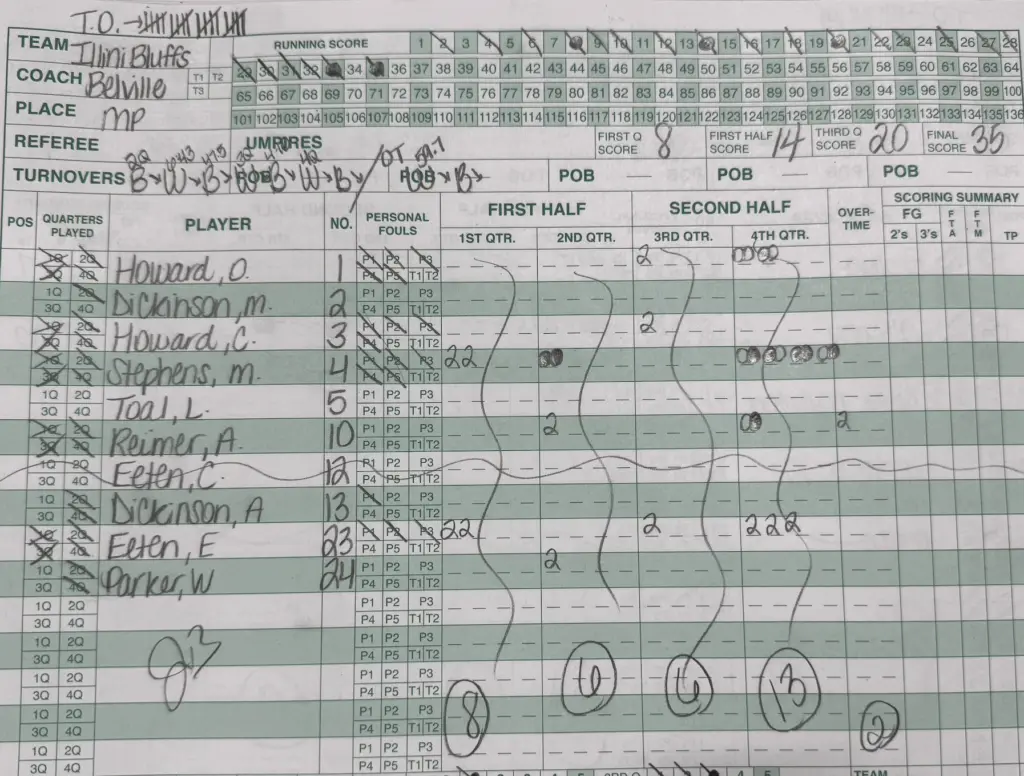 T.O. →
TEAM Illini Bluffs RUNNING SCORE 1 2 3 4 5 6 7 8 9 10 11 12 13 14 15 16 17 18 19 20 21 22 23 24 25 26 27 28
COACH Belville T1 T2 T3 29 30 31 32 33 34 35 36 37 38 39 40 41 42 43 44 45 46 47 48 49 50 51 52 53 54 55 56 57 58 59 60 61 62 63 64
65 66 67 68 69 70 71 72 73 74 75 76 77 78 79 80 81 82 83 84 85 86 87 88 89 90 91 92 93 94 95 96 97 98 99 100
PLACE MP 101 102 103 104 105 106 107 108 109 110 111 112 113 114 115 116 117 118 119 120 121 122 123 124 125 126 127 128 129 130 131 132 133 134 135 136
REFEREE UMPIRES FIRST Q SCORE 8 FIRST HALF SCORE 14 THIRD Q SCORE 20 FINAL SCORE 35
TURNOVERS B W B POB B W B OT POB W B POB — POB — POB —
POS QUARTERS PLAYED PLAYER NO. PERSONAL FOULS FIRST HALF SECOND HALF OVER-TIME SCORING SUMMARY
1ST QTR. 2ND QTR. 3RD QTR. 4TH QTR. FG 2's 3's FTA FTM TP
1Q 2Q 3Q 4Q Howard, O. 1 P1 P2 P3 P4 P5 T1 T2 2
1Q 2Q 3Q 4Q Dickinson, M. 2 P1 P2 P3 P4 P5 T1 T2
1Q 2Q 3Q 4Q Howard, C. 3 P1 P2 P3 P4 P5 T1 T2 2
1Q 2Q 3Q 4Q Stephens, M. 4 P1 P2 P3 P4 P5 T1 T2 22
1Q 2Q 3Q 4Q Toal, L. 5 P1 P2 P3 P4 P5 T1 T2
1Q 2Q 3Q 4Q Reimer, A. 10 P1 P2 P3 P4 P5 T1 T2 2 2
1Q 2Q 3Q 4Q Eeten, C. 12 P1 P2 P3 P4 P5 T1 T2
1Q 2Q 3Q 4Q Dickinson, A 13 P1 P2 P3 P4 P5 T1 T2
1Q 2Q 3Q 4Q Eeten, E 23 P1 P2 P3 P4 P5 T1 T2 22 2 222
1Q 2Q 3Q 4Q Parker, W 24 P1 P2 P3 P4 P5 T1 T2 2
1Q 2Q 3Q 4Q P1 P2 P3 P4 P5 T1 T2
1Q 2Q 3Q 4Q P1 P2 P3 P4 P5 T1 T2
1Q 2Q 3Q 4Q P1 P2 P3 P4 P5 T1 T2 6 6 13
1Q 2Q 3Q 4Q P1 P2 P3 P4 P5 T1 T2 8 2
1Q 2Q 3Q 4Q P1 P2 P3 P4 P5 T1 T2
TEAM